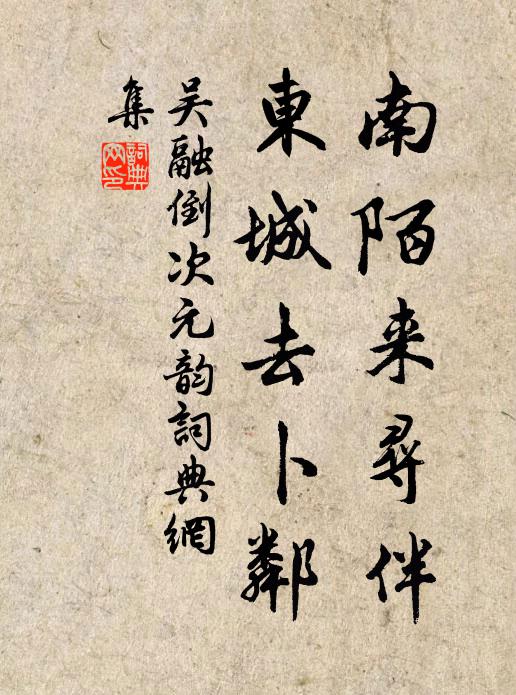 南陌来尋伴
東城去卜鄰
吴融倒次元韵詞典網
集
詞典網印